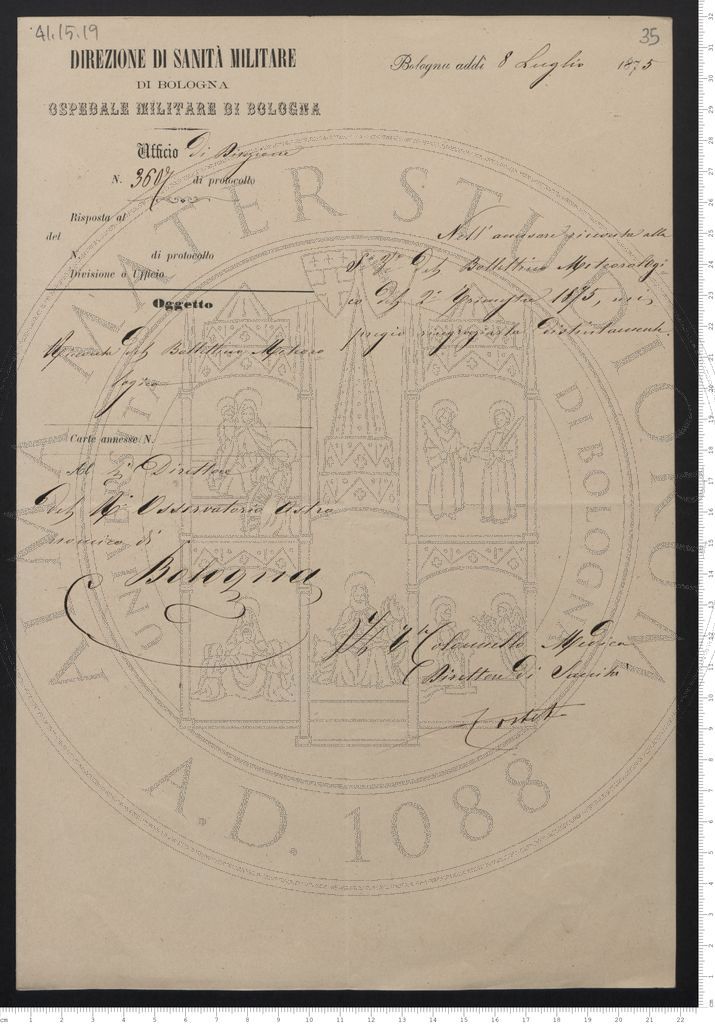 41.15.19
35
DIREZIONE DI SANITÀ MILITARE
DI BOLOGNA
OSPEDALE MILITARE DI BOLOGNA
Bologna addì 8 Luglio 1875
Ufficio di Direzione
N. 3607 di protocollo
Risposta al
del
N. di protocollo
Divisione o Ufficio
Oggetto
Bollettino Meteoro
logico
Carte annesse N.
Al Direttore
del Osservatorio Astro
nomico di
Bologna
Nell'accusare ricevuta alla
del Bollettino Meteorologi
co del 2° Trimestre 1875, mi
pregio ringraziarla distintamente.
Il Colonnello Medico
Direttore di Sanità
ALMA MATER STUDIORUM
UNIVERSITA DI BOLOGNA
A.D. 1088